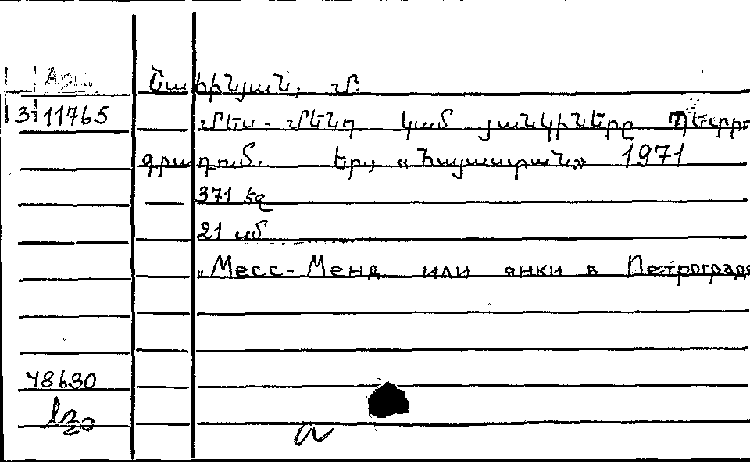 Շահինյան, Մ.
3 11765 Մես-Մենդ կամ յանկիները Պետրո
գրադում. Եր., «Հայաստան» 1971
371 էջ
21 սմ
„Месс-Менд или янки в Петрограде
78630
a